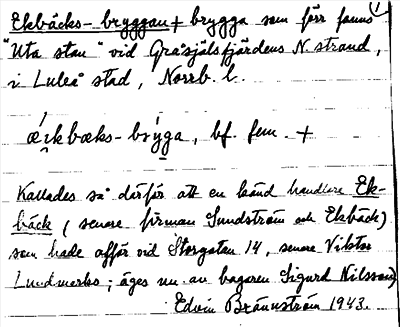 Ekbäcks-bryggan + brygga som förr fanns 1
"Uta stan" vid Gräsjälsfjärdens N. strand,
i Luleå stad, Norrb. l.
bf. fem. +
Kallades så därför att en känd handlare Ek-
bäck (senare firman Sundström och Ekbäck)
som hade affär vid Storgatan 14, senare Viktor
Lundmarks; äges nu av bagaren Sigurd Nilsson,
Edvin Brännström 1943.